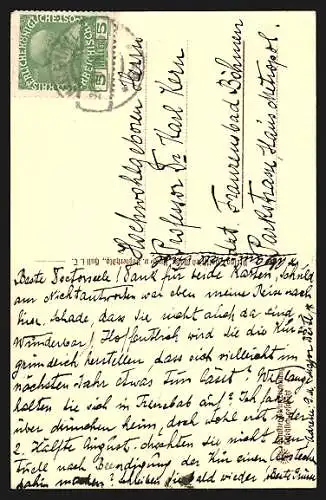 KAISERLICHE KÖNIGLICHE ÖSTERREICHISCHE POST
5 HELLER 5
Hochwohlgeboren Herrn
Professor Dr Karl Kern
Franzensbad Böhmen
Parkstrasse, Haus Metropol.
Beste Doctorseele! Dank für beide Karten, schuld
am Nichtantworten war eben meine Reise nach
hier. Schade, dass Sie nicht auch da sind
Wunderbar! Hoffentlich wird die die Kur
gründlich herstellen, dass sich vielleicht im
nächsten Jahr etwas tun lässt? Wie lange
halten Sie sich in Franzbad auf? Ich fahre
über heim, doch wohl erst in der
2. Hälfte August. Möchten Sie nicht
tuell nach Beendigung der Kur einen Abstecher
dahin machen? Schreiben Sie bald wieder
Beste Grüsse